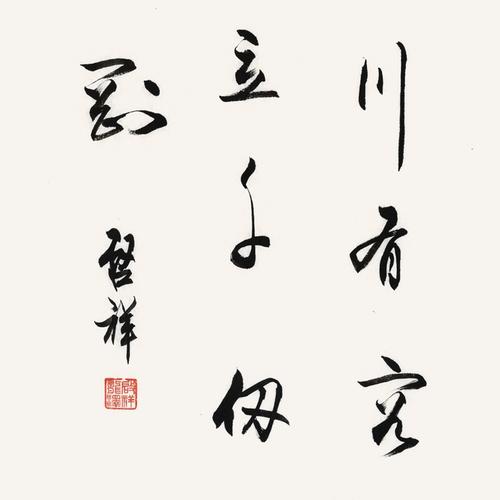 川有容
立千仞
剛
啓祥